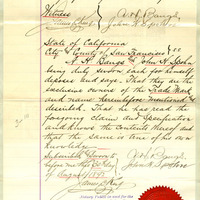 Witness
A H Bangs
John H Spohn
State of California
City & County of San Francisco } SS
A. H. Bangs & John H Spohn
being duly sworn each for himself
deposes and says. That they are the
exclusive owners of the Trade Mark
and name hereinbefore mentioned &
described. That he has read the
foregoing claims and specification
and knows the contents thereof and
that the same is true of his own
knowledge
Subscribed & Sworn to
before me this
of August 1895
A H Bangs
John H Spohn